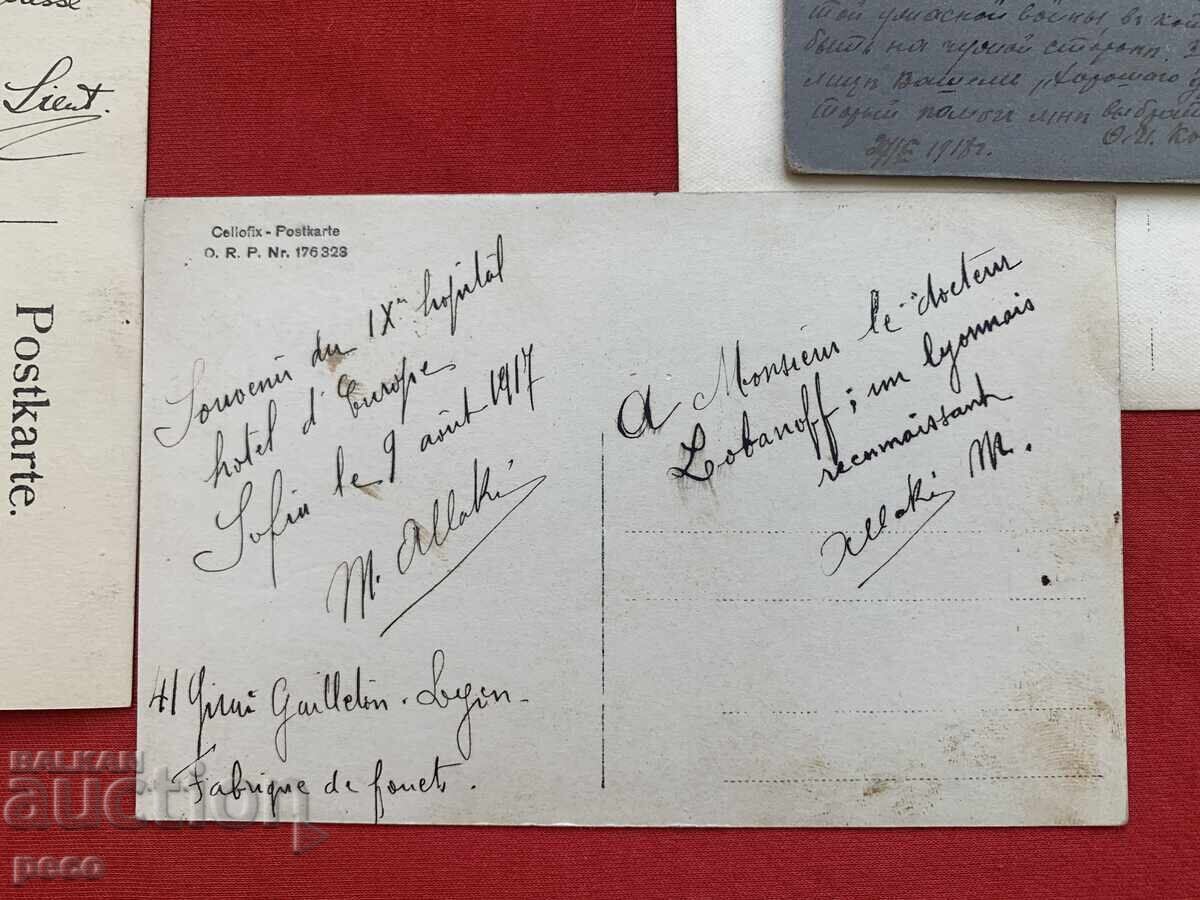 Sient.
Postkarte.
той ужасной войны въ
быть на чужой сторонѣ.
"Хорошаго
1918г.
Cellofix - Postkarte
D. R. P. Nr. 176323
Souvenir du IXme hopitâl
hotel d'Europe
Sofia le 9 août 1917
M. Allaki
41 Quai Gailleton - Lyon -
Fabrique de fouets.
A Monsieur le docteur
Lobanoff; un lyonnais
reconnaissant
Allaki M.
BALKAN
auction
peco